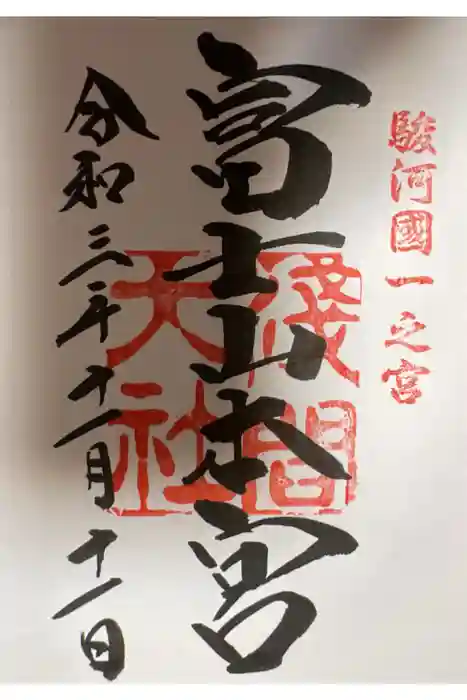 駿河國一之宮
富士山本宮
淺間
大社
令和三年十一月十一日